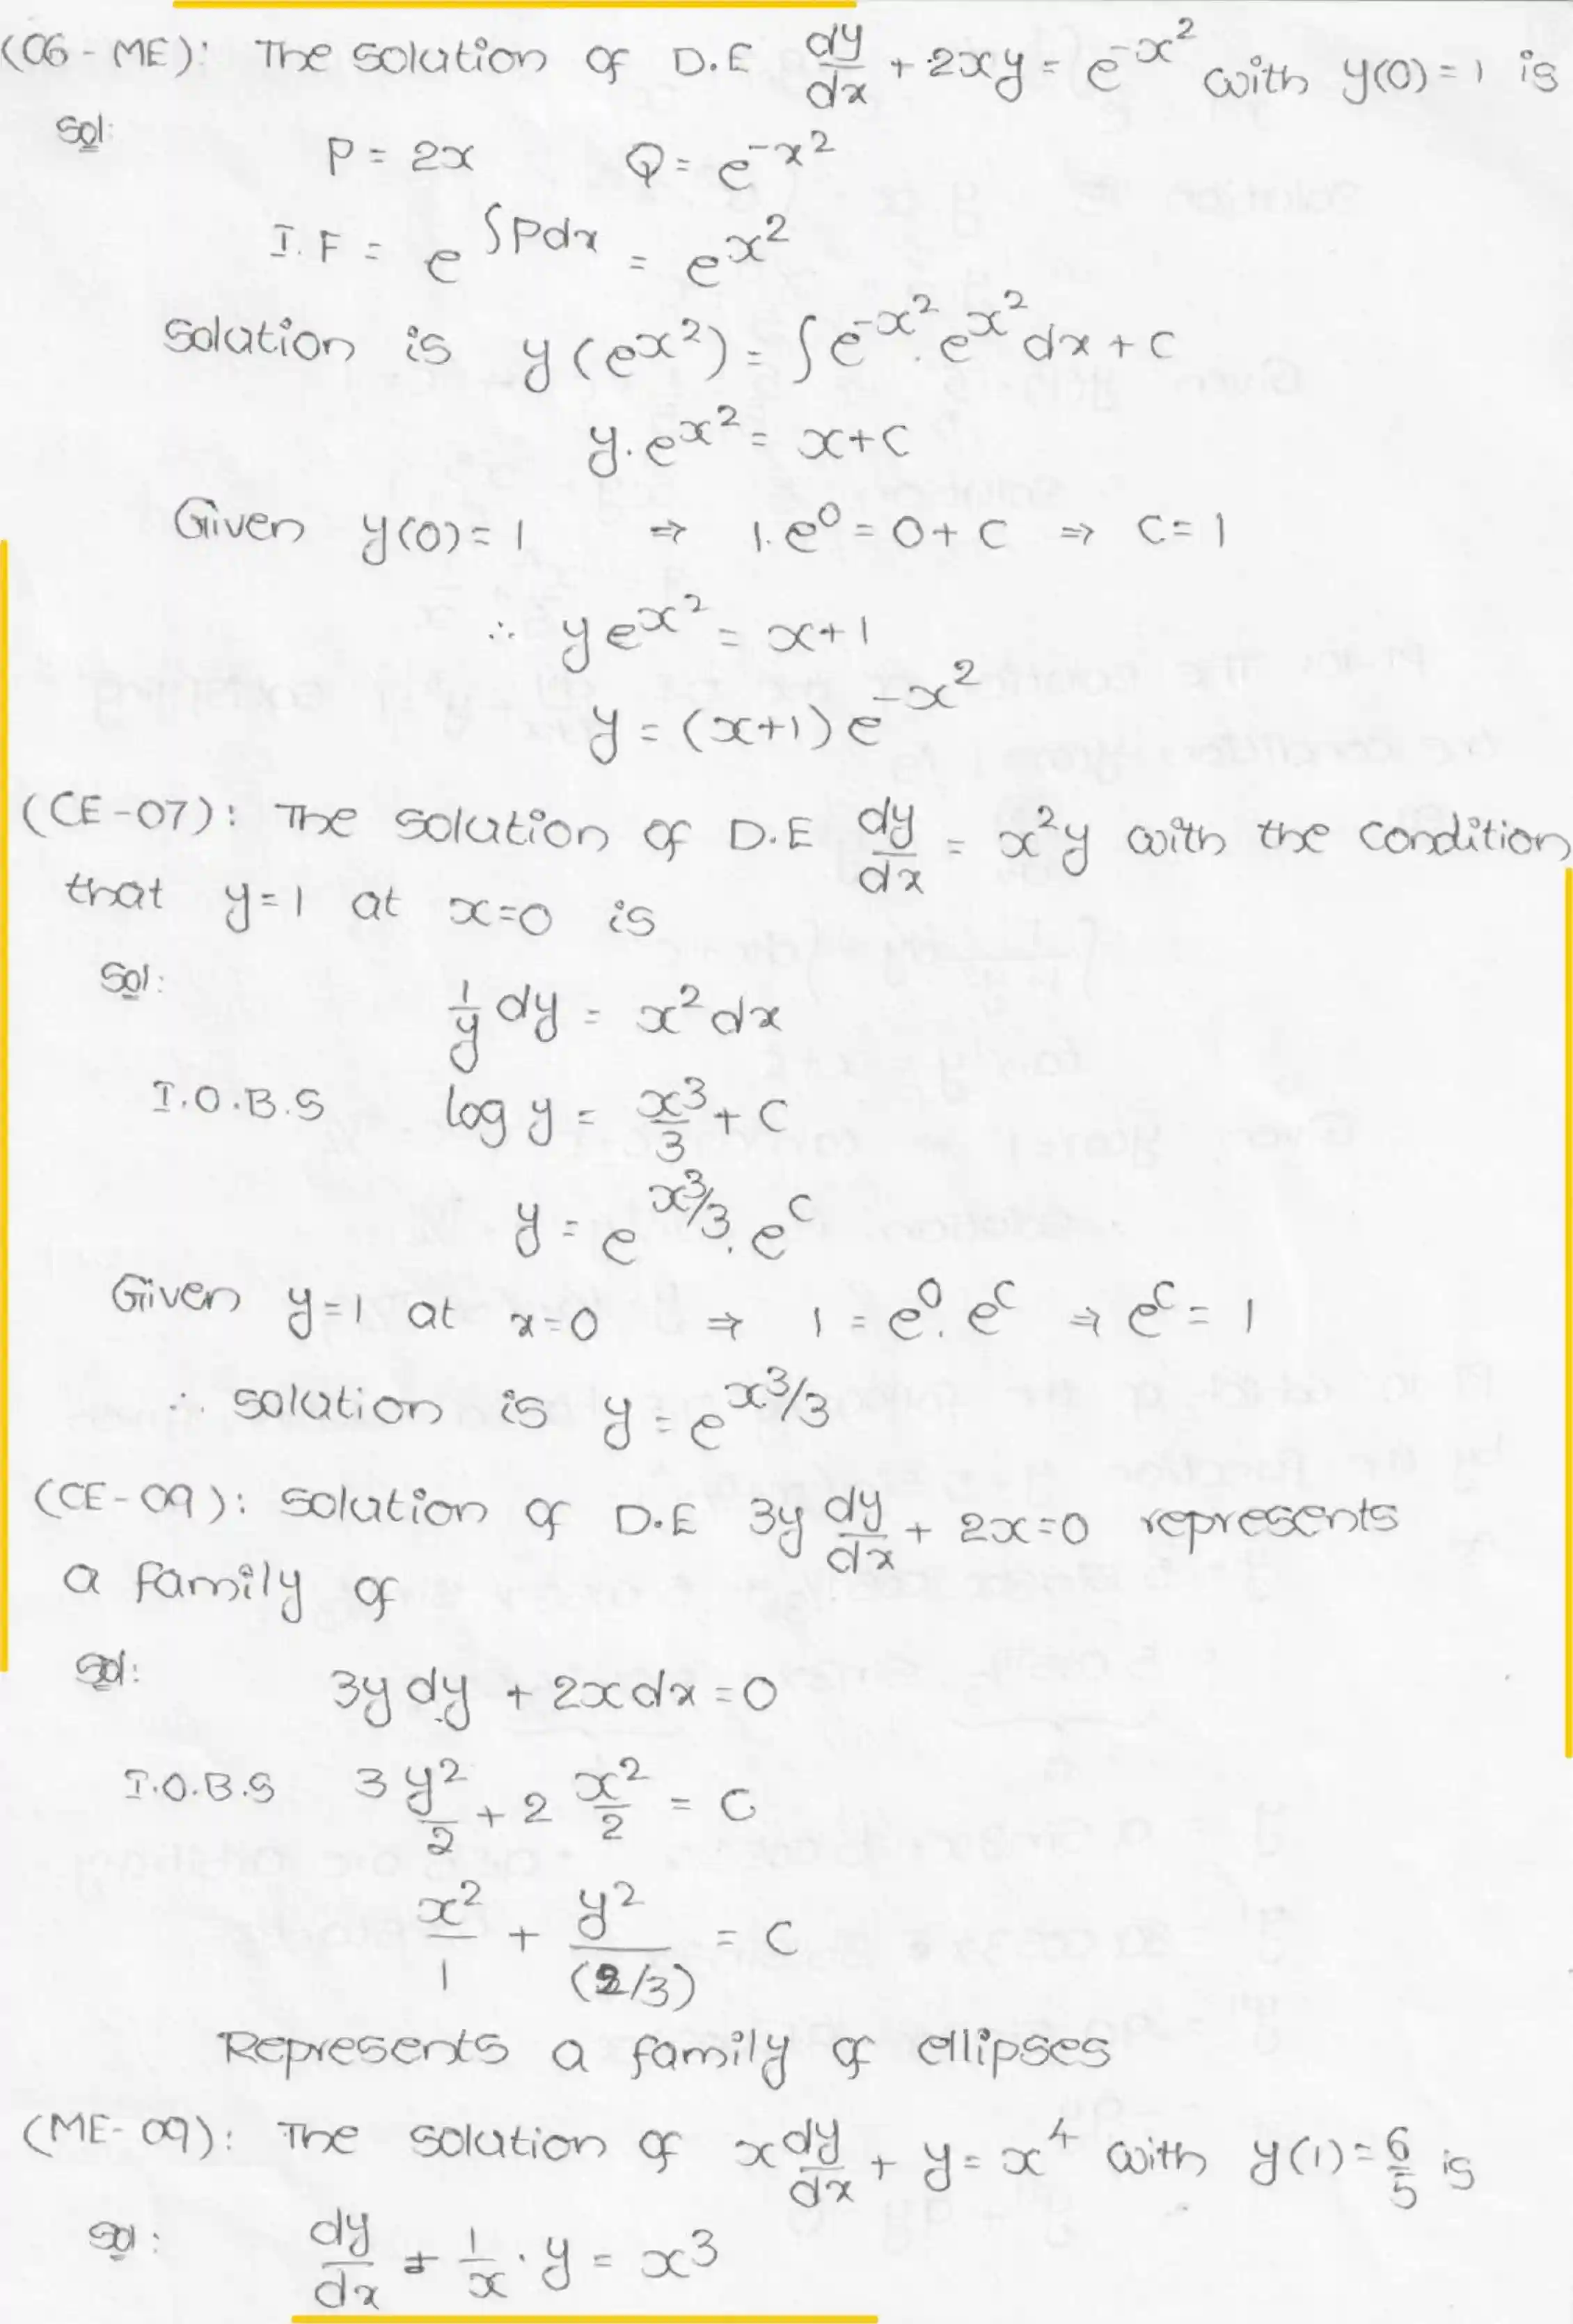 (06 - ME): The solution of D.E dy/dx + 2xy = e^-x² with y(0) = 1 is
Sol:
P = 2x Q = e^-x²
I.F = e^∫Pdx = e^x²
Solution is y(e^x²) = ∫e^-x².e^x² dx + c
y.e^x² = x+c
Given y(0) = 1 ⇒ 1.e⁰ = 0 + c ⇒ c = 1
∴ y e^x² = x+1
y = (x+1) e^-x²
(CE - 07): The solution of D.E dy/dx = x²y with the condition
that y=1 at x=0 is
Sol:
1/y dy = x² dx
I.O.B.S log y = x³/3 + c
y = e^x³/3 . e^c
Given y=1 at x=0 ⇒ 1 = e⁰. e^c ⇒ e^c = 1
∴ solution is y = e^x³/3
(CE - 09): Solution of D.E 3y dy/dx + 2x = 0 represents
a family of
Sol:
3y dy + 2x dx = 0
I.O.B.S 3 y²/2 + 2 x²/2 = c
x²/1 + y²/(2/3) = c
Represents a family of ellipses
(ME- 09): The solution of x dy/dx + y = x⁴ with y(1) = 6/5 is
Sol:
dy/dx + 1/x . y = x³